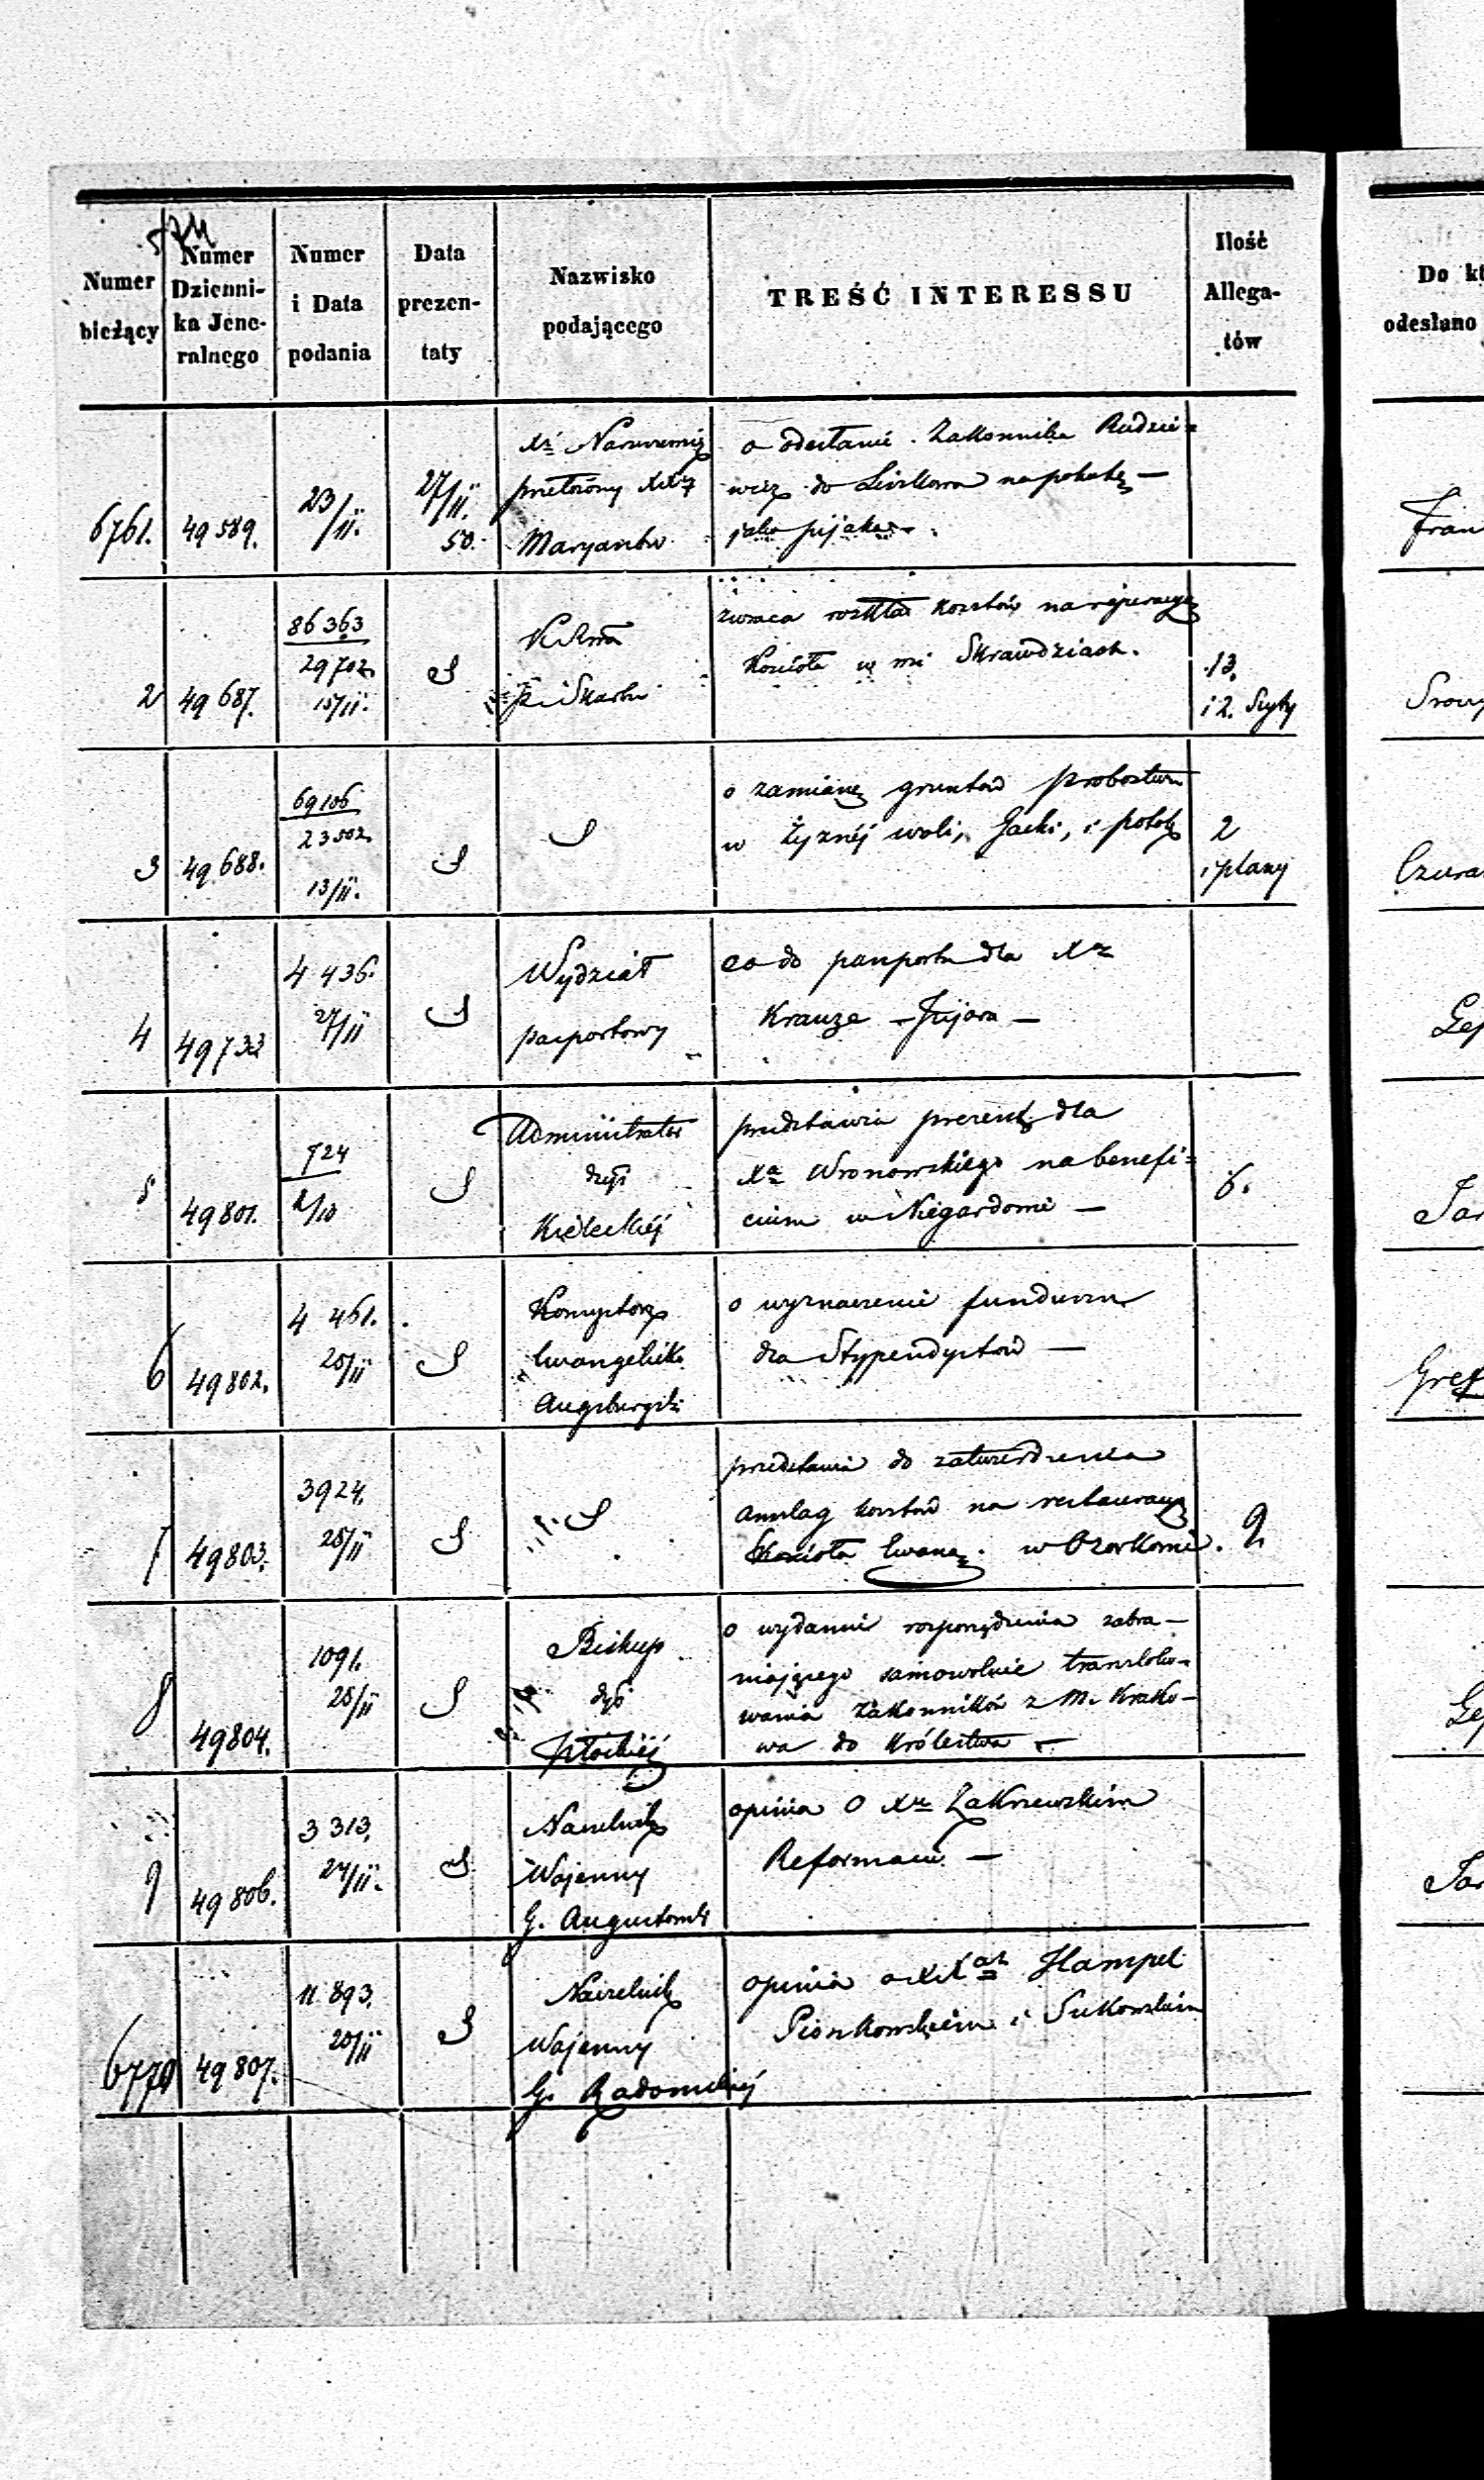 Numer bieżący
Numer Dzienni-
ka Jene-
ralnego
Numer i Data podania
Data prezen-
taty
Nazwisko podającego
TREŚĆ INTERESSU
Ilość Allega-
tów
Do
odesłano
6761. 49589. 23/11. 27/11. 50.
przełożony
Maryanów
o odesłanie Zakonnika Rudzie=
wicz do na pokutę —
jako pijaka —
2 49687. 86363
29702
15/11.
Skarbu
zwraca rozkład kosztów na reperacyę
Kościoła w Skrawdziach.
13.
i 2.
3 49688. 69106
23502
13/11.
o zamianę gruntów probostwa
w Żyznéj woli, i
2
i plany
4 49733 4436.
27/11
Wydział
paszportowy
co do paszportu dla Xa
Krauze —
5 49801. 724
Administrator
dyi
Kieleckiéj
przedstawia prezentę dla
Xa Wronowskiego na benefi=
cium w Niegardowie —
6.
6 49802. 4461.
25/11
Konsystorz
Ewangelicko
Augsburgski
o wyznaczenie funduszu
dla Stypendystów —
7 49803. 3924.
25/11
przedstawia do zatwierdzenia
anszlag kosztów na restauracyę
Kościoła Ewang. w Ozorkowie.
2
8 49804. 1091.
25/11
Biskup
dyi
Płockiéj
o wydanie rozporządzenia zabra—
niającego samowolnie transloko—
wania zakonników z M. Krako—
wa do Królestwa —
9 49806. 3313.
24/11.
Naczelnik
Wojenny
G. Augustowsk
opinia o Xu Zakrzewskim
Reformacie —
6770 49807. 11893.
20/11
Naczelnik
Wojenny
G. Radomskiéj
opinia o XXach Hampel
Piorkowskim i Sukowskim